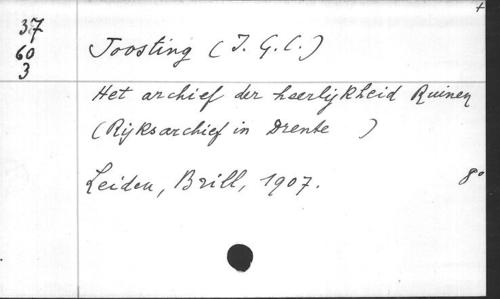 +
37
60
3
Joosting (J. G. C.)
Het archief der heerlijkheid Ruinen
(Rijksarchief in Drente )
Leiden, Brill, 1907. 8°